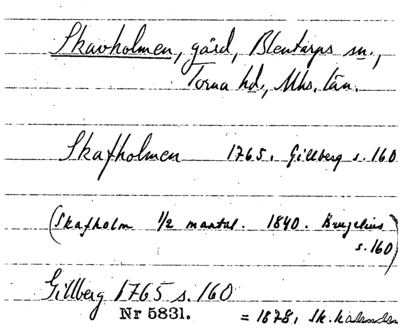 Skavholmen, gård, Blentarps sn.,
Torna hd., Mhs. län.
Skafholmen 1765. Gillberg s. 160
(Skafholm 1/2 mantal. 1840. Brugelius
s. 160)
Gillberg 1765 s. 160
Nr 5831. = 1878, Sk. kalender